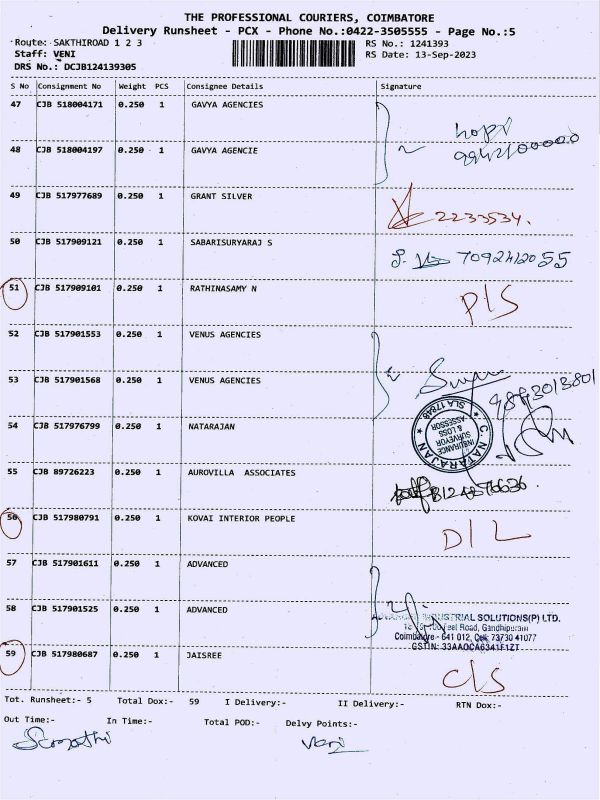 THE PROFESSIONAL COURIERS, COIMBATORE
Delivery Runsheet - PCX - Phone No.:0422-3505555 - Page No.:5
Route: SAKTHIROAD 1 2 3 RS No.: 1241393
Staff: VENI RS Date: 13-Sep-2023
DRS No.: DCJB124139305
S No Consignment No Weight PCS Consignee Details Signature
47 CJB 518004171 0.250 1 GAVYA AGENCIES
48 CJB 518004197 0.250 1 GAVYA AGENCIE
49 CJB 517977689 0.250 1 GRANT SILVER 2233534.
50 CJB 517909121 0.250 1 SABARISURYARAJ S
51 CJB 517909101 0.250 1 RATHINASAMY N P/S
52 CJB 517901553 0.250 1 VENUS AGENCIES
53 CJB 517901568 0.250 1 VENUS AGENCIES
54 CJB 517976799 0.250 1 NATARAJAN
C. NATARAJAN
INSURANCE
SURVEYOR
& LOSS
ASSESSOR
55 CJB 89726223 0.250 1 AUROVILLA ASSOCIATES
56 CJB 517980791 0.250 1 KOVAI INTERIOR PEOPLE D/L
57 CJB 517901611 0.250 1 ADVANCED
58 CJB 517901525 0.250 1 ADVANCED
INDUSTRIAL SOLUTIONS(P) LTD.
Feet Road, Gandhipuram
Coimbatore - 641 012, Cell: 73730 41077
GSTIN: 33AAOCA6341F1ZT
59 CJB 517980687 0.250 1 JAISREE C/S
Tot. Runsheet:- 5 Total Dox:- 59 I Delivery:- II Delivery:- RTN Dox:-
Out Time:- In Time:- Total POD:- Delvy Points:-
Veni